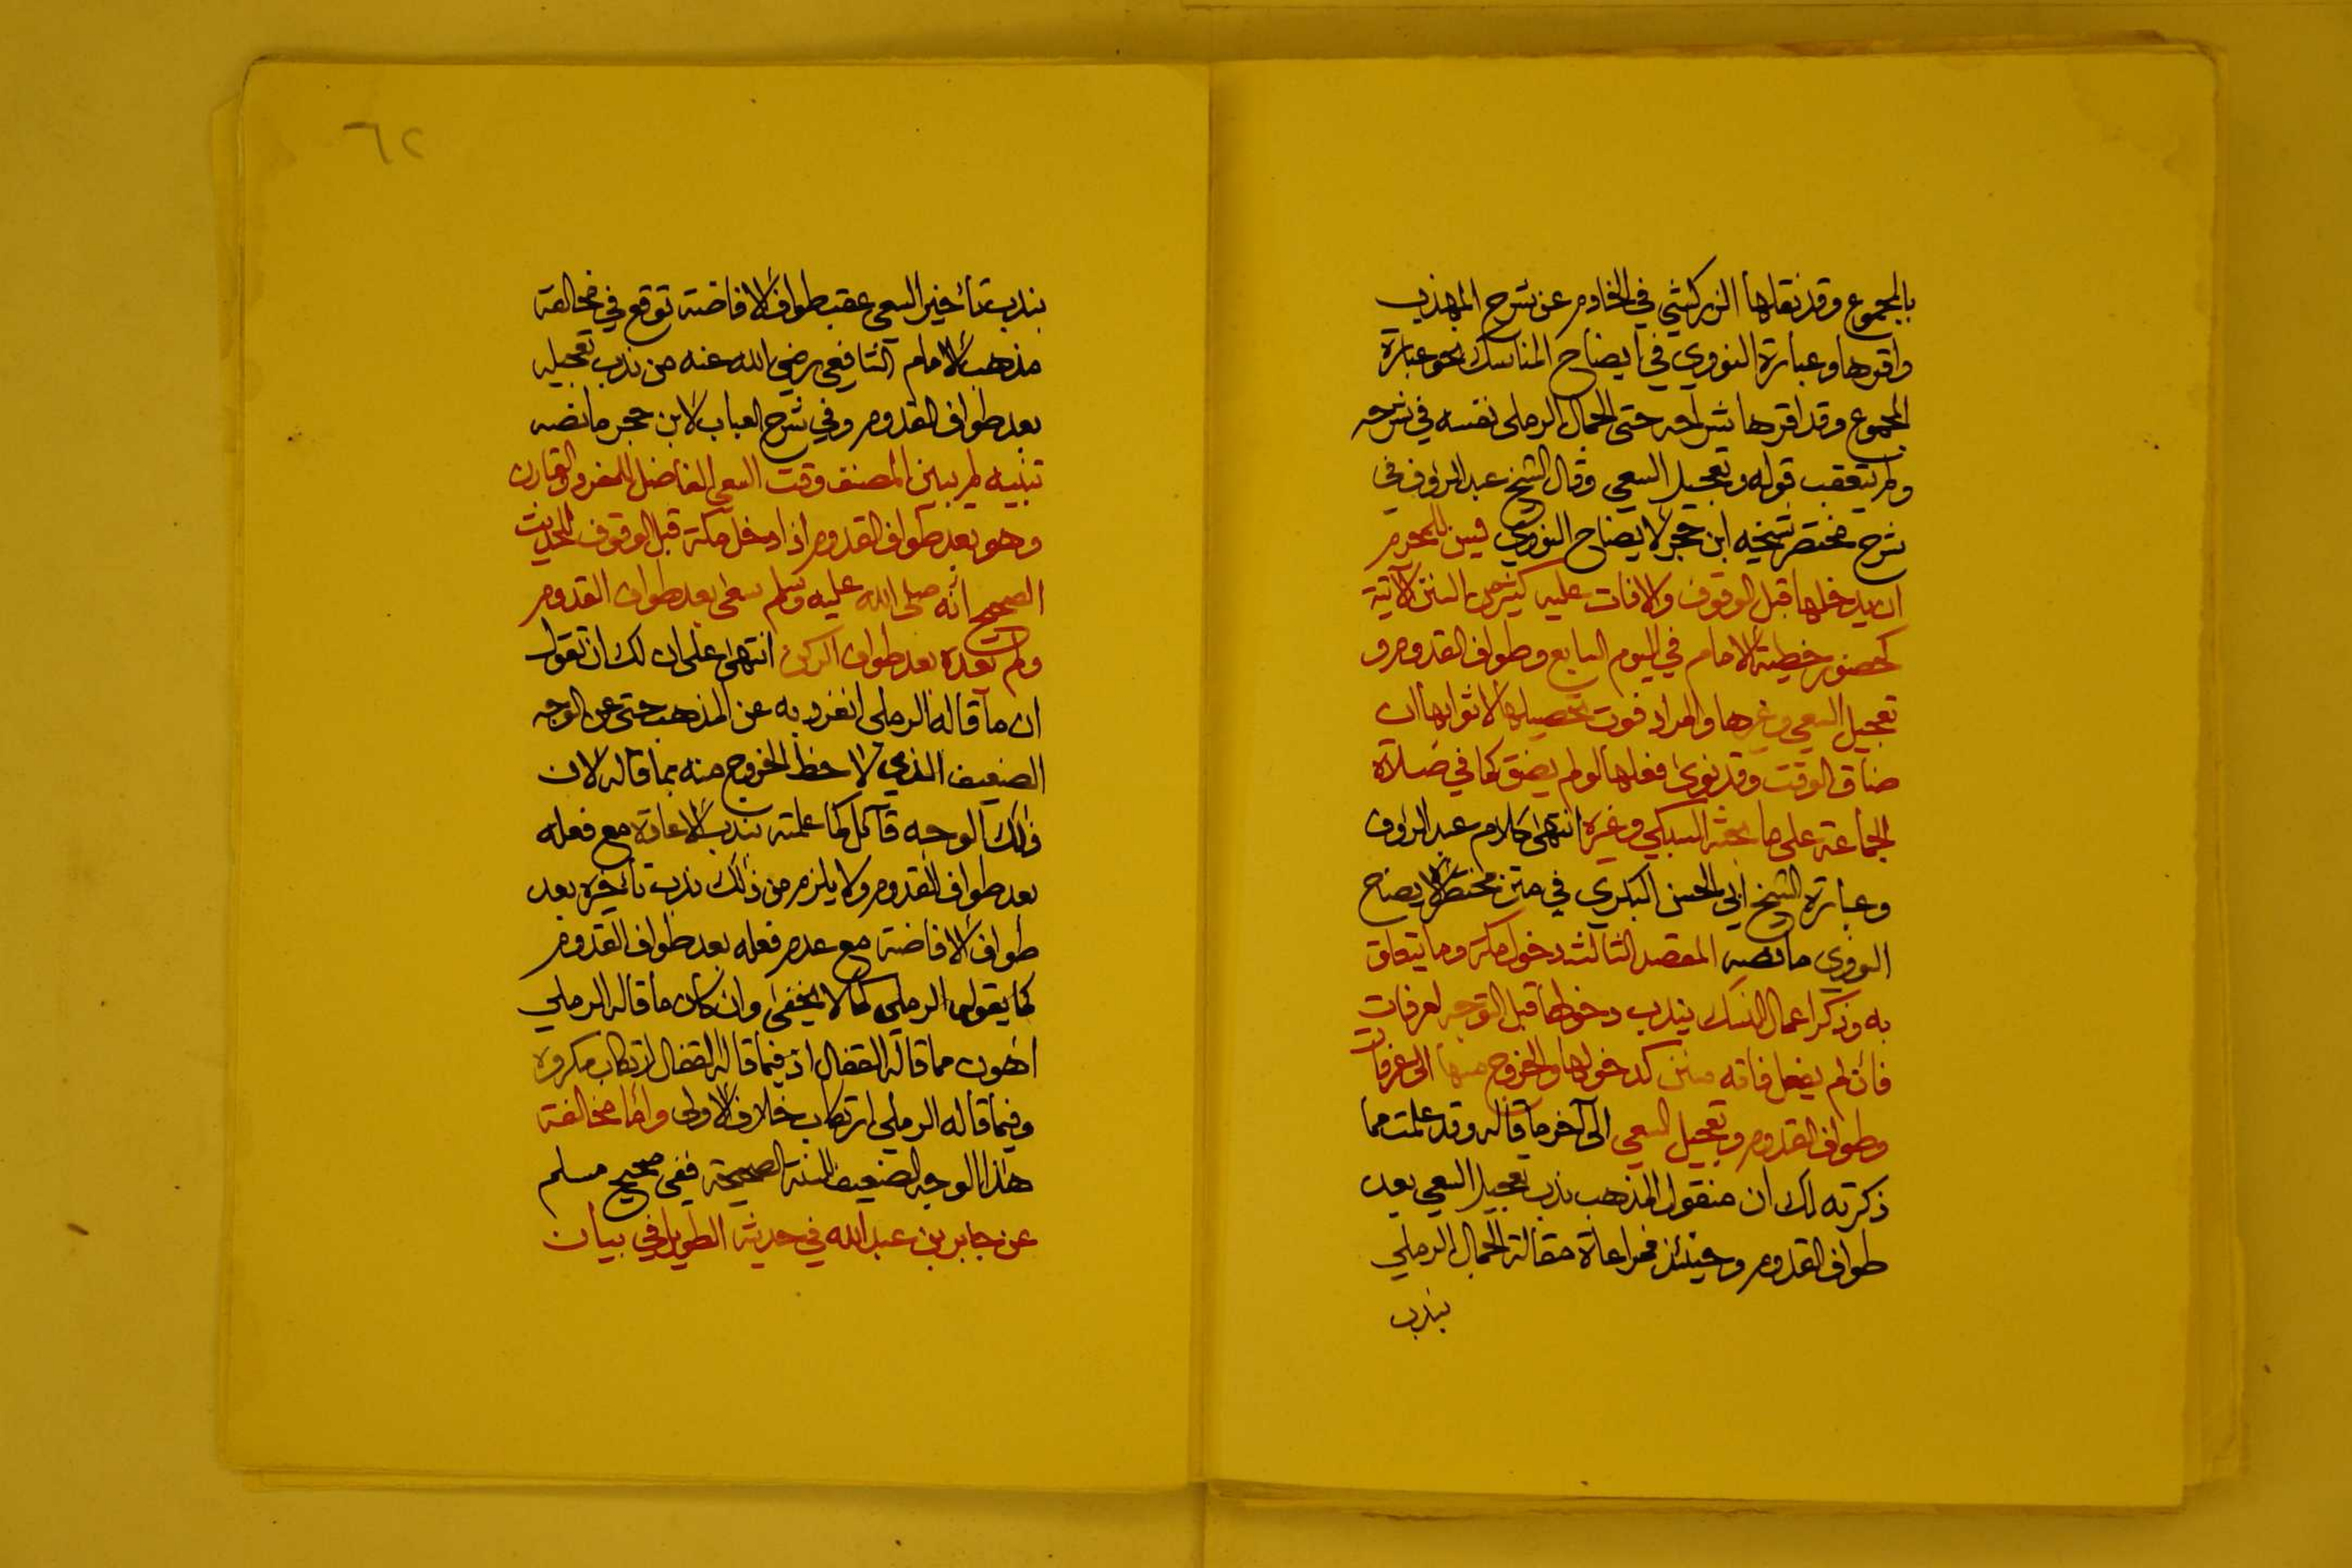 بالمجموع وقد نقلها الزركشي في الخادم عن شرح المهذب
واقرها وعبارة النووي في ايضاح المناسك نحو عبارة
المجموع وقد اقرها شراحه حتى الجمال الرملي نفسه في شرحه
ولم يتعقب قوله وتعجيل السعي وقال الشيخ عبد الرؤف في
شرح مختصر شيخه ابن حجر لايضاح النووي ليس للمحرم
ان يدخلها قبل الوقوف والافات عليه كثير من السنن الآتية
كحضور خطبة الامام في اليوم السابع وطواف القدوم و
تعجيل السعي وغيرها والمراد فوت تحصيلها لا ثوابها ان
ضاق الوقت وقد نوى فعلها لو لم يضق كما في صلاة
الجماعة على ما بحثه السبكي وغيره انتهى كلام عبد الرؤف
وعبارة الشيخ ابي الحسن البكري في متن مختصر الايضاح
النووي ما نصه المقصد الثالث دخول مكة وما يتعلق
به وذكر اعمال النسك يندب دخولها قبل التوجه لعرفات
فان لم يفعل فاته سنن كدخولها والخروج منها الى عرفات
وطواف القدوم وتعجيل السعي الى آخر ما قاله وقد علمت مما
ذكرته لك ان منقول المذهب ندب تعجيل السعي بعد
طواف القدوم وحينئذ فمراعاة مقالة الجمال الرملي
بندب
٦٢
بندب تأخير السعي عقب طواف الافاضة توقع في مخالفة
مذهب الامام الشافعي رضي الله عنه من ندب تعجيله
بعد طواف القدوم وفي شرح العباب لابن حجر ما نصه
تنبيه لم يبين المصنف وقت السعي الفاضل للمفرد والقارن
وهو بعد طواف القدوم اذا دخل مكة قبل الوقوف للحديث
الصحيح انه صلى الله عليه وسلم سعى بعد طواف القدوم
ولم يعده بعد طواف الركن انتهى على ان لك ان تقول
ان ما قاله الرملي انفرد به عن المذهب حتى عن الوجه
الضعيف الذي لاحظ الخروج منه بما قاله لان
ذلك الوجه قآئل كما علمته بندب الاعادة مع فعله
بعد طواف القدوم ولا يلزم من ذلك ندب تأخيره بعد
طواف الافاضة مع عدم فعله بعد طواف القدوم
كما يقوله الرملي كما لا يخفى وان كان ما قاله الرملي
اهون مما قاله القفال اذ فيما قاله القفال ارتكاب مكروه
وفيما قاله الرملي ارتكاب خلاف الاولى واما مخالفة
هذا الوجه الضعيف للسنة الصحيحة ففي صحيح مسلم
عن جابر بن عبد الله في حديثه الطويل في بيان